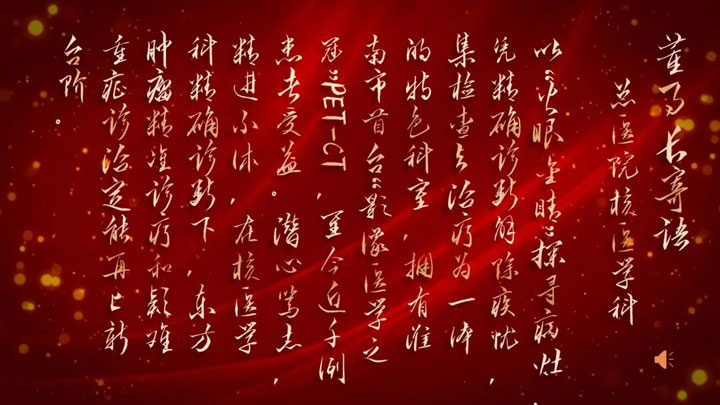 董事长寄语
总医院核医学科
以“火眼金睛”探寻病灶，
凭精确诊断解除疾忧，
集检查与治疗为一体
的特色科室，拥有淮
南市首台“影像医学之
冠”PET-CT，至今近千例
患者受益。潜心笃志，
精进不休，在核医学
科精确诊断下，东方
肿瘤精准诊疗和疑难
重症诊治定能再上新
台阶。